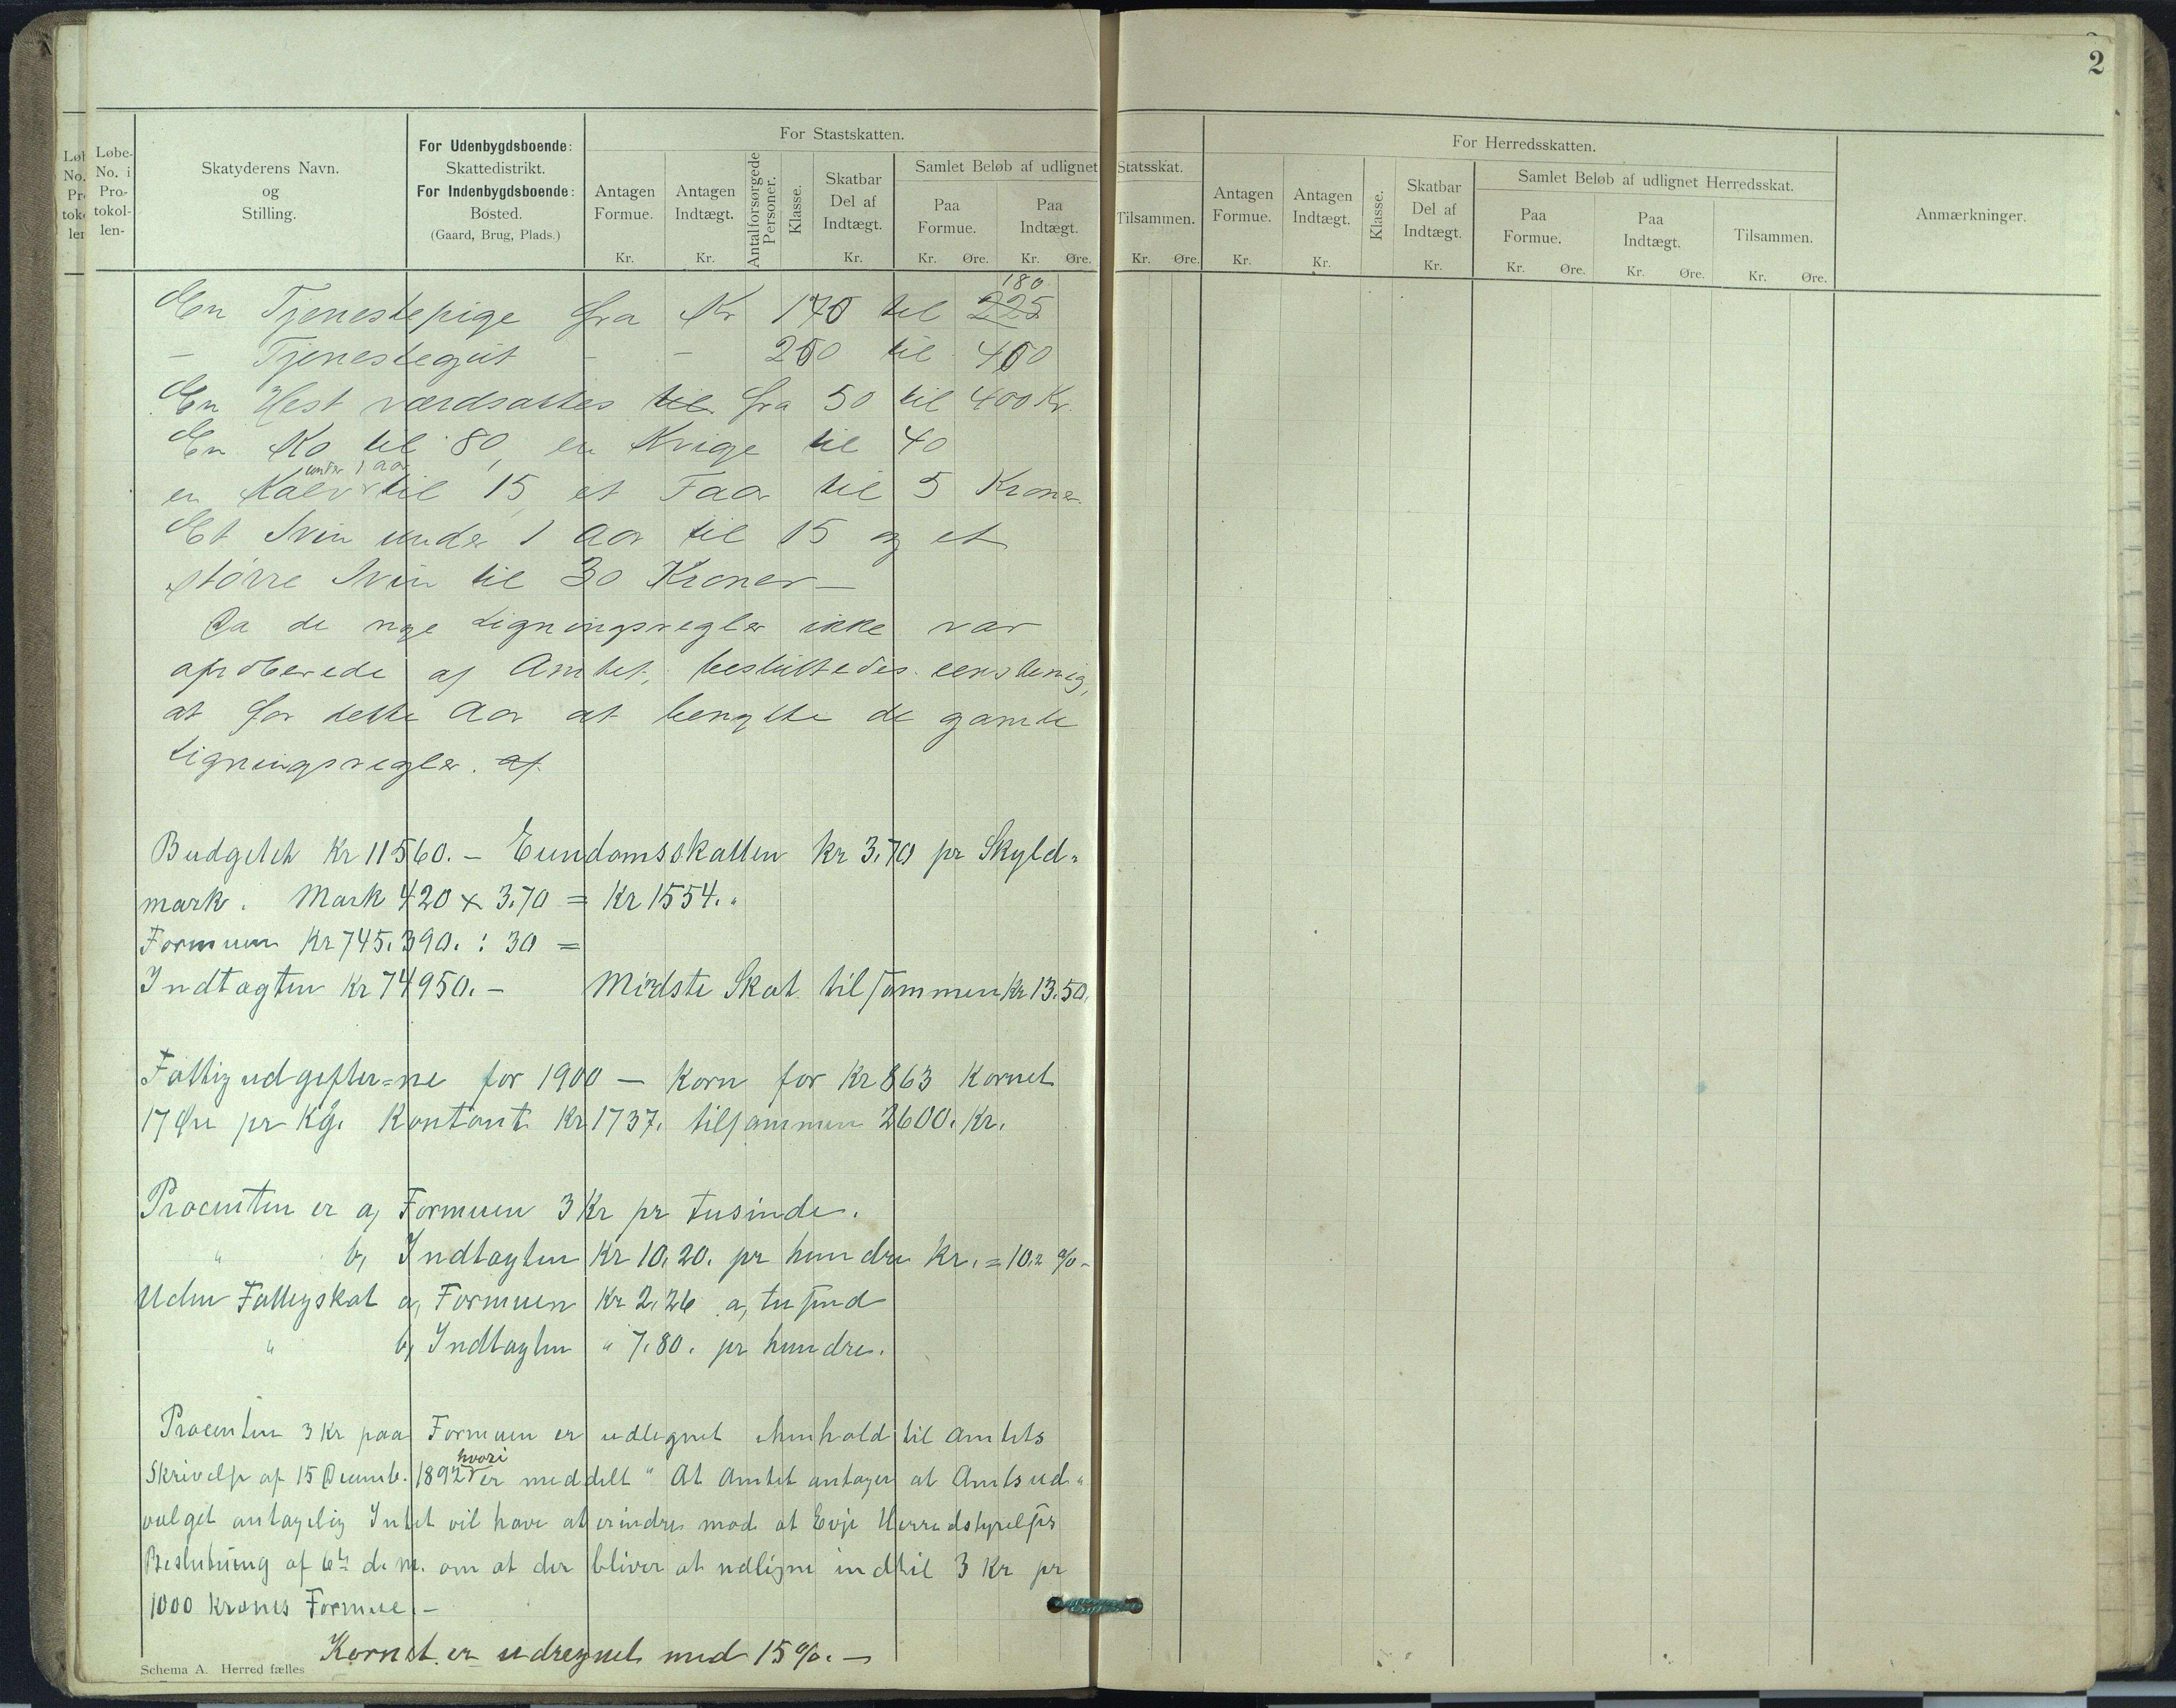 2
Løbe-No. i Pro-tokol-len-
Skatyderens Navn. og Stilling.
For Udenbygdsboende: Skattedistrikt. For Indenbygdsboende: Bosted. (Gaard, Brug, Plads.)
For Stastskatten.
Antagen Formue. Kr.
Antagen Indtægt. Kr.
Antal forsørgede Personer.
Klasse.
Skatbar Del af Indtægt. Kr.
Samlet Beløb af udlignet Statsskat.
Paa Formue. Kr. Øre.
Paa Indtægt. Kr. Øre.
Tilsammen. Kr. Øre.
For Herredsskatten.
Antagen Formue. Kr.
Antagen Indtægt. Kr.
Klasse.
Skatbar Del af Indtægt. Kr.
Samlet Beløb af udlignet Herredsskat.
Paa Formue. Kr. Øre.
Paa Indtægt. Kr. Øre.
Tilsammen. Kr. Øre.
Anmærkninger.
180
En Tjenestepige fra Kr 170 til 225
- Tjenestegut - - 250 til 400
En Hest værdsattes til fra 50 til 400 Kr.
En Ko til 80, en Kvige til 40
under 1 aar
en Kalv til 15, et Faar til 5 Kroner.
Et Svin under 1 Aar til 15 og et
større Svin til 30 Kroner —
Da de nye Ligningsregler ikke var
aproberede af Amtet, besluttedes eenstemig,
at for dette Aar at benytte de gamle
Ligningsregler. af
Budgettet Kr 11560. – Eiendomsskatten Kr 3.70 pr Skyld=
mark. Mark 420 x 3.70 = Kr 1554. „
Formuen Kr 745.390. : 30 =
Indtægten Kr 74950. – Mindste Skat tilsammen Kr 13.50.
Fattigudgifter=ne for 1900 — Korn for Kr 863 Kornet
17 Øre pr Kg. Kontant Kr 1737. tilsammen 2600. Kr.
Procenten er a, Formuen 3 Kr pr tusinde.
„ b, Indtægten Kr 10.20. pr hundre Kr. = 10.2 % -
Uden Fattigskat a, Formuen Kr 2.26 a, tusind
„ b, Indtægten „ 7.80. pr hundre.
Procenten 3 Kr paa Formuen er udlignet i henhold til Amtets
hvori
Skrivelse af 15 Decemb. 1892 er meddelt "At Amtet antager at Amtsud=
valget antagelig Intet vil have at erindre mod at Evje Herredstyrelses
Beslutning af 6te d. M. om at der bliver at udligne indtil 3 Kr pr
1000 Kroners Formue. –
Kornet er udregnet med 15 %. —
Schema A. Herred fælles